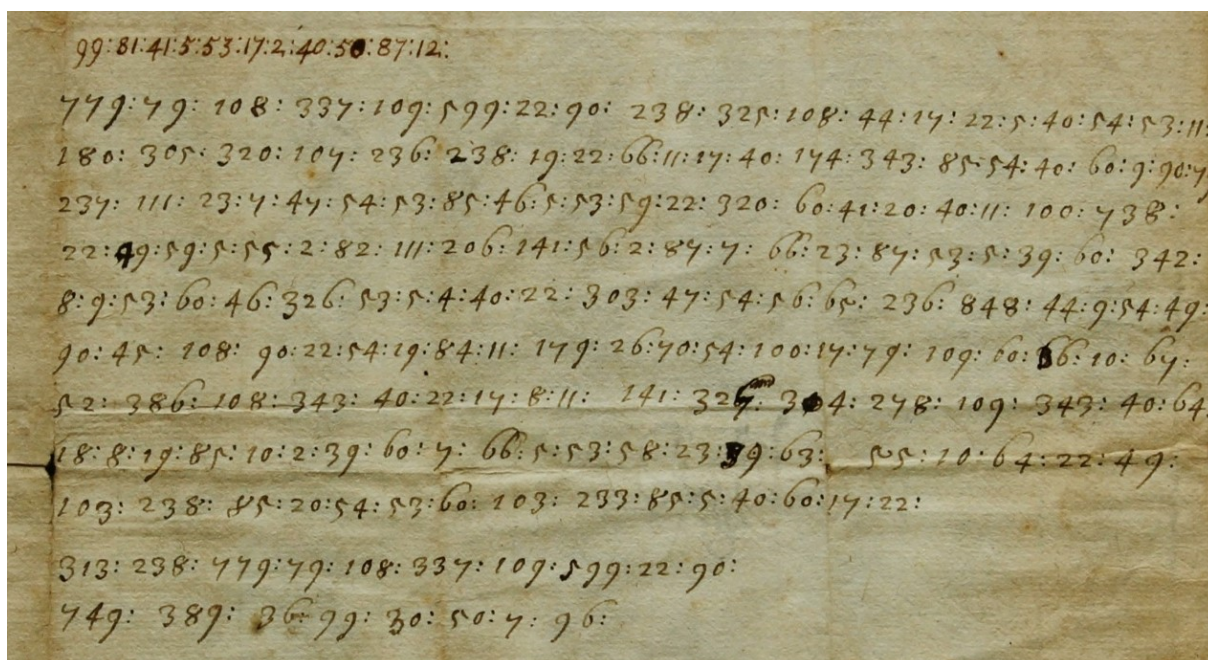 99:81:41:5:53:17:2:40:50:87:12:
779:79: 108: 337:109:599:22:90: 238: 325:108: 44:17:22:5:40:54:53:11:
180: 305: 320: 107: 236: 238: 19:22:66:11:17:40: 174: 343: 85:54:40: 60:9:90:7
237: 111: 23:7:47:54:53:85:46:5:53:59:22: 320: 60:41:20:40:11: 100: 738:
22:49:59:5:55:2:82: 111:206:141:56:2:87:7: 66:23:87:53:5:39:60: 342:
8:9:53:60:46:326:53:5:4:40:22: 303:47:54:56:65: 236: 848: 44:9:54:49:
90:45: 108: 90:22:54:19:84:11: 179: 26:70:54:100:17:79: 109: 60: 66:10: 67:
52: 386:108: 343: 40:22:17:8:11: 141: 327: 304: 278: 109: 343: 40:64
18:8:19:85:10:2:39:60:7: 66:5:53:58:23:39:63: 55:10:64:22:49:
103: 238: 85:20:54:53:60: 103: 233:85:5:40:60:17:22:
313: 238: 779:79:108:337:109:599:22:90:
749: 389: 36:99:30:50:7: 96: